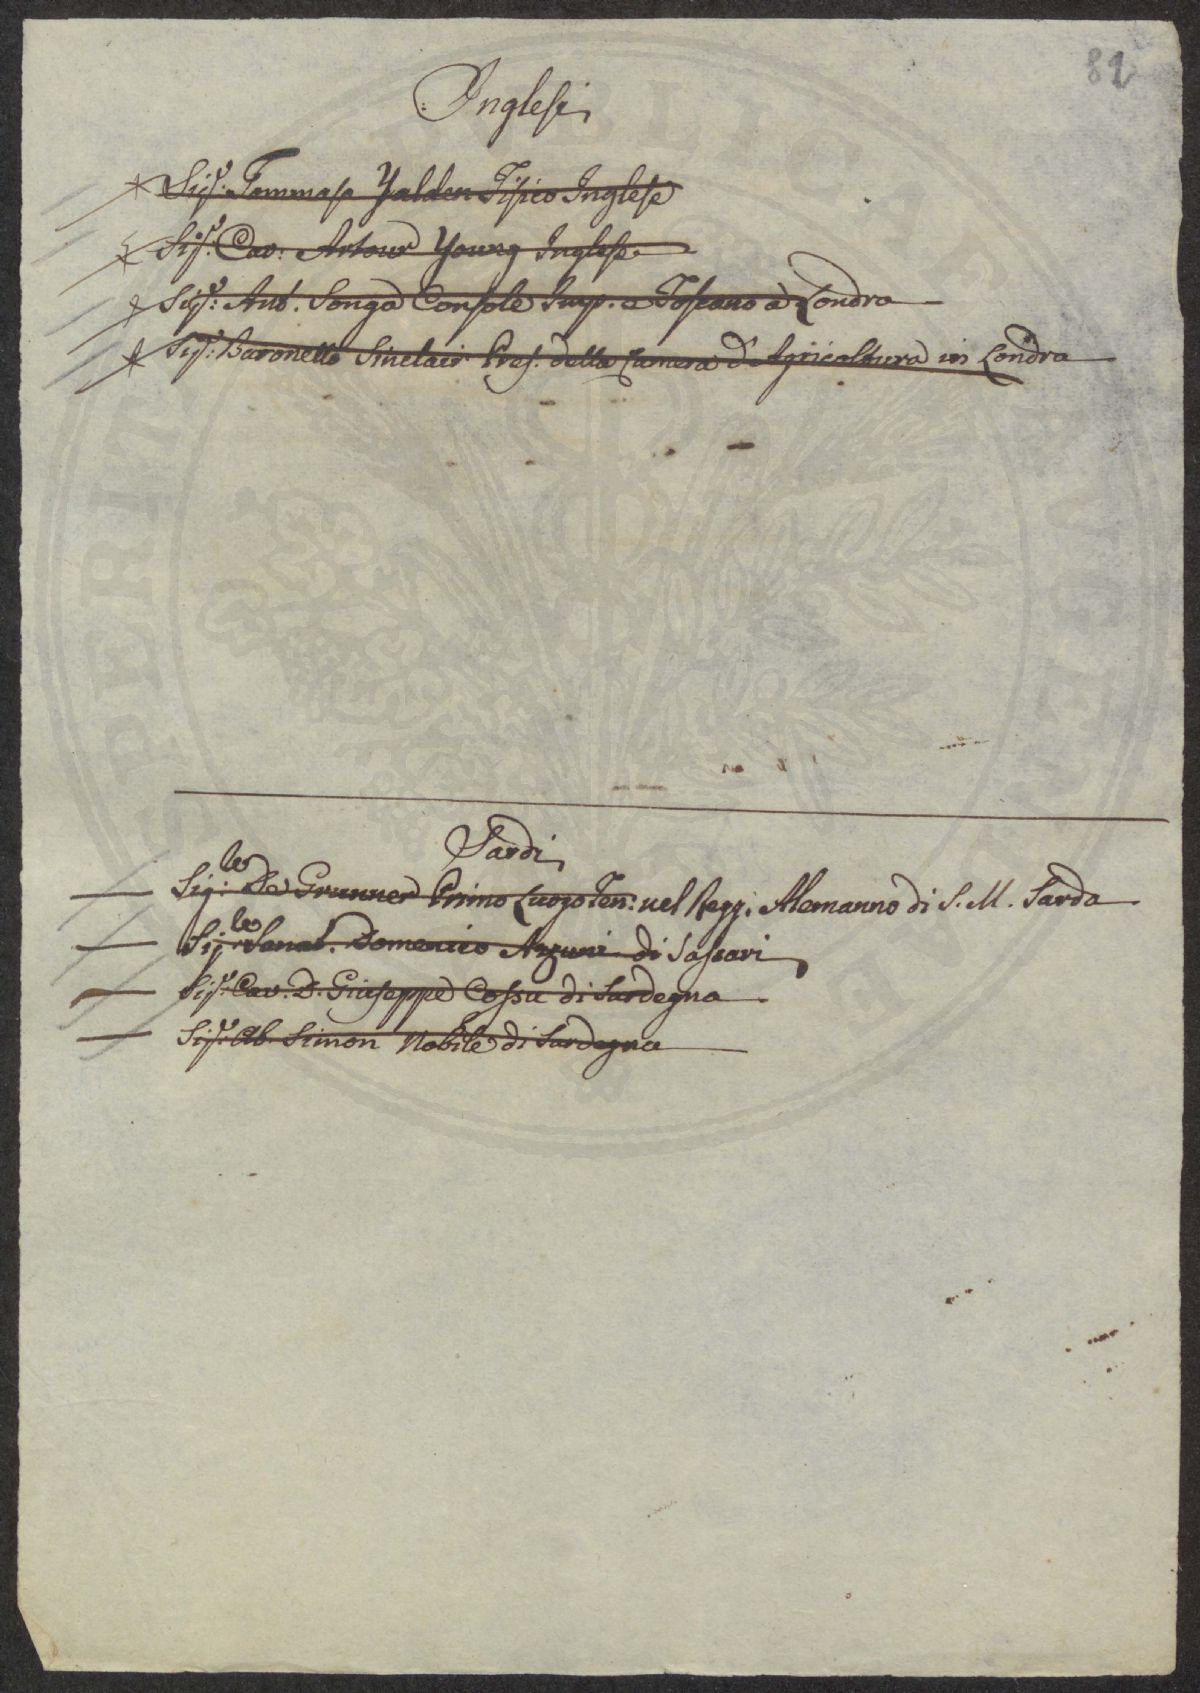 82
Inglesi
Sig.r Tommaso Yalden Fisico Inglese
Sig.r Cav. Artour Young Inglese
Sig.r Ant. Songa Console Imp. e Toscano a Londra
Sig.r Baronetto Sinclair Pres. della Camera d'Agricoltura in Londra
Sardi
Sig.re De Grunner Primo Luogo Ten: nel Regg. Alemanno di S. M. Sarda
Sig.re Senat. Domenico Azuni di Sassari
Sig.r Cav. D. Giuseppe Cossu di Sardegna
Sig.r Ab. Simon Nobile di Sardegna